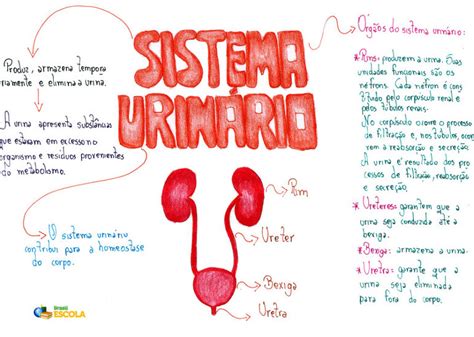 SISTEMA
URINÁRIO
Produz, armazena tempora
riamente e elimina a urina.
A urina apresenta substâncias
que estavam em excesso no
organismo e resíduos provenientes
do metabolismo.
O sistema urinário
contribui para a homeostase
do corpo.
Rim
Ureter
Bexiga
Uretra
Órgãos do sistema urinário:
* Rins: produzem a urina. Suas
unidades funcionais são os
néfrons. Cada néfron é cons
tituído pelo corpúsculo renal e
pelos túbulos renais.
No corpúsculo ocorre o processo
de filtração e, nos túbulos, ocor
rem a reabsorção e secreção.
A urina é resultado dos pro
cessos de filtração, reabsorção
e secreção.
* Ureteres: garantem que a
urina seja conduzida até a
bexiga.
* Bexiga: armazena a urina.
* Uretra: garante que a
urina seja eliminada
para fora do corpo.
Brasil
ESCOLA